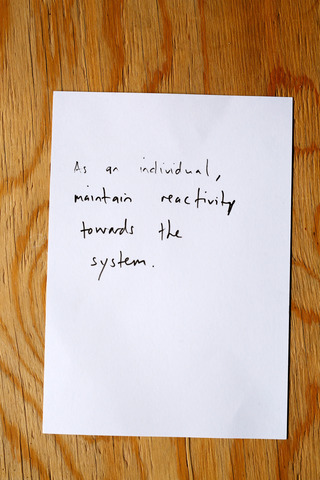 As an individual,
maintain reactivity
towards the
system.